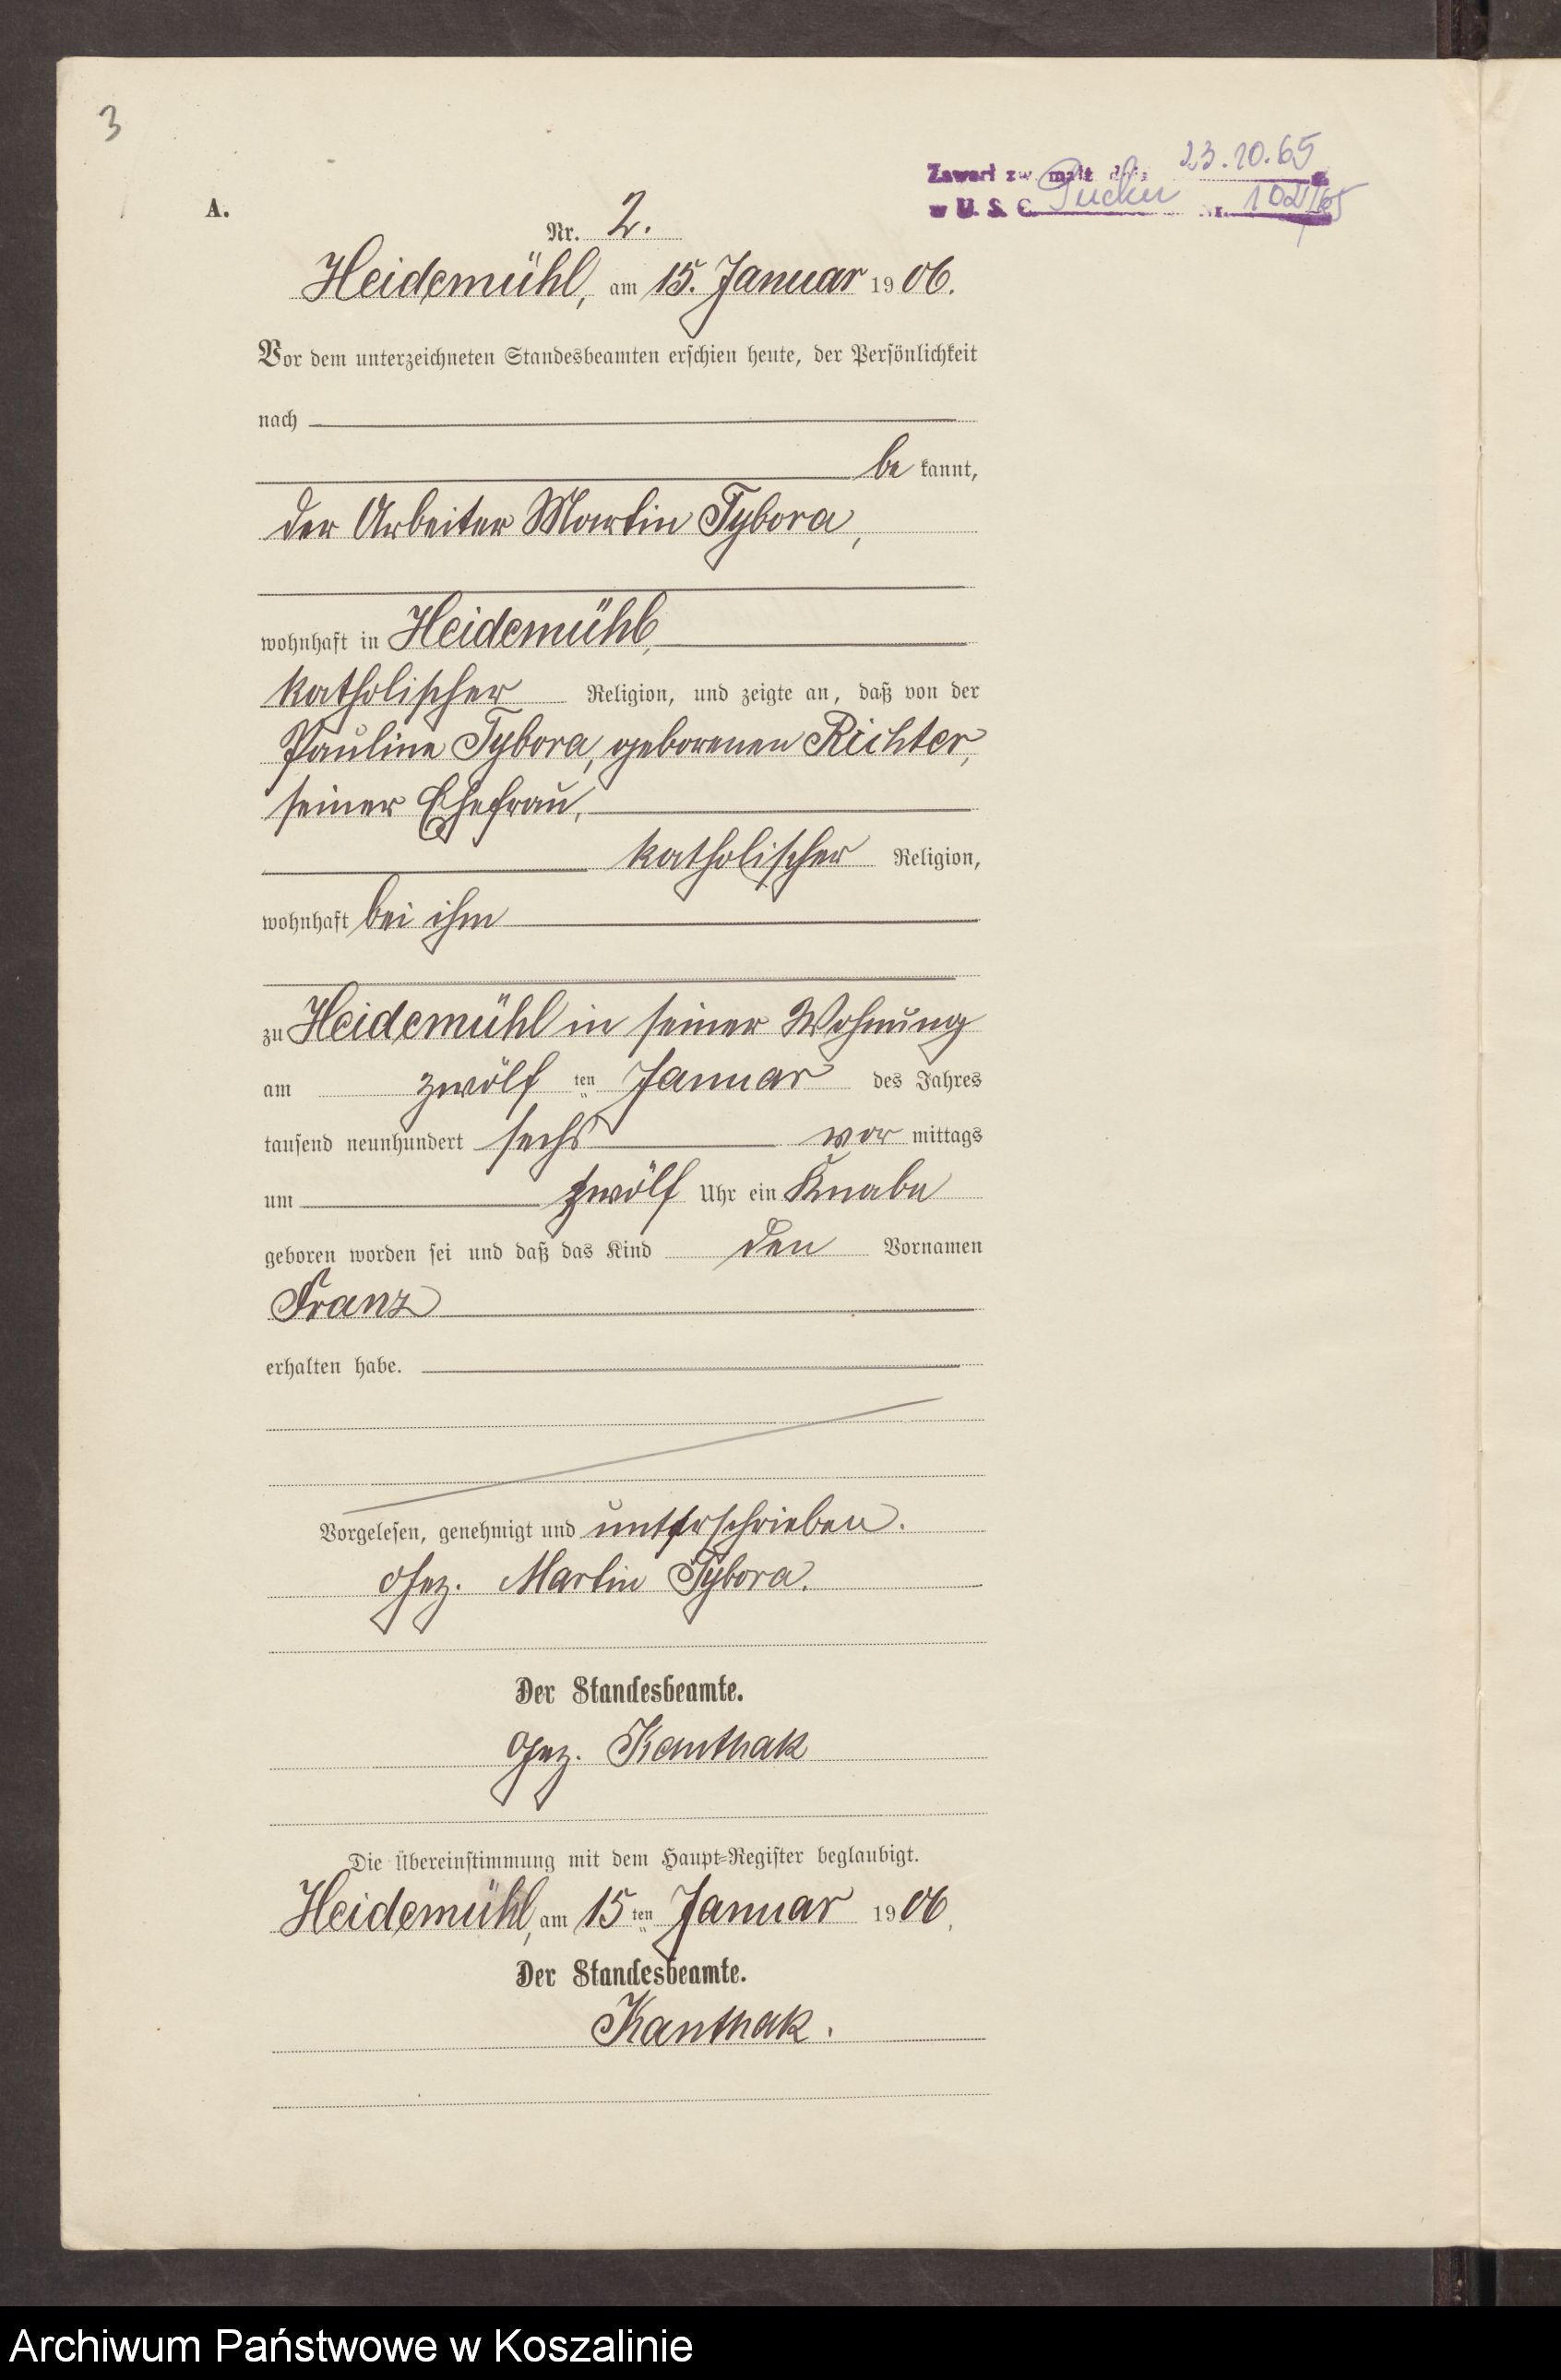 3
Zawarł zw. małż dnia 23.10.65 r.
A.
w U. S. C. Nr. 102/65
Nr. 2.
Heidemühl, am 15. Januar 1906.
Vor dem unterzeichneten Standesbeamten erschien heute, der Persönlichkeit
nach
be kannt,
der Arbeiter Martin Tybora,
wohnhaft in Heidemühl,
katholischer Religion, und zeigte an, daß von der
Pauline Tybora, geborenen Richter,
seiner Ehefrau,
katholischer Religion,
wohnhaft bei ihm
zu Heidemühl in seiner Wohnung
am zwölf ten Januar des Jahres
tausend neunhundert sechs vor mittags
um zwölf Uhr ein Knabe
geboren worden sei und daß das Kind den Vornamen
Franz
erhalten habe.
Vorgelesen, genehmigt und unterschrieben.
gez. Martin Tybora.
Der Standesbeamte.
gez. Kanthak
Die Übereinstimmung mit dem Haupt-Register beglaubigt.
Heidemühl, am 15 ten Januar 1906.
Der Standesbeamte.
Kanthak.
Archiwum Państwowe w Koszalinie